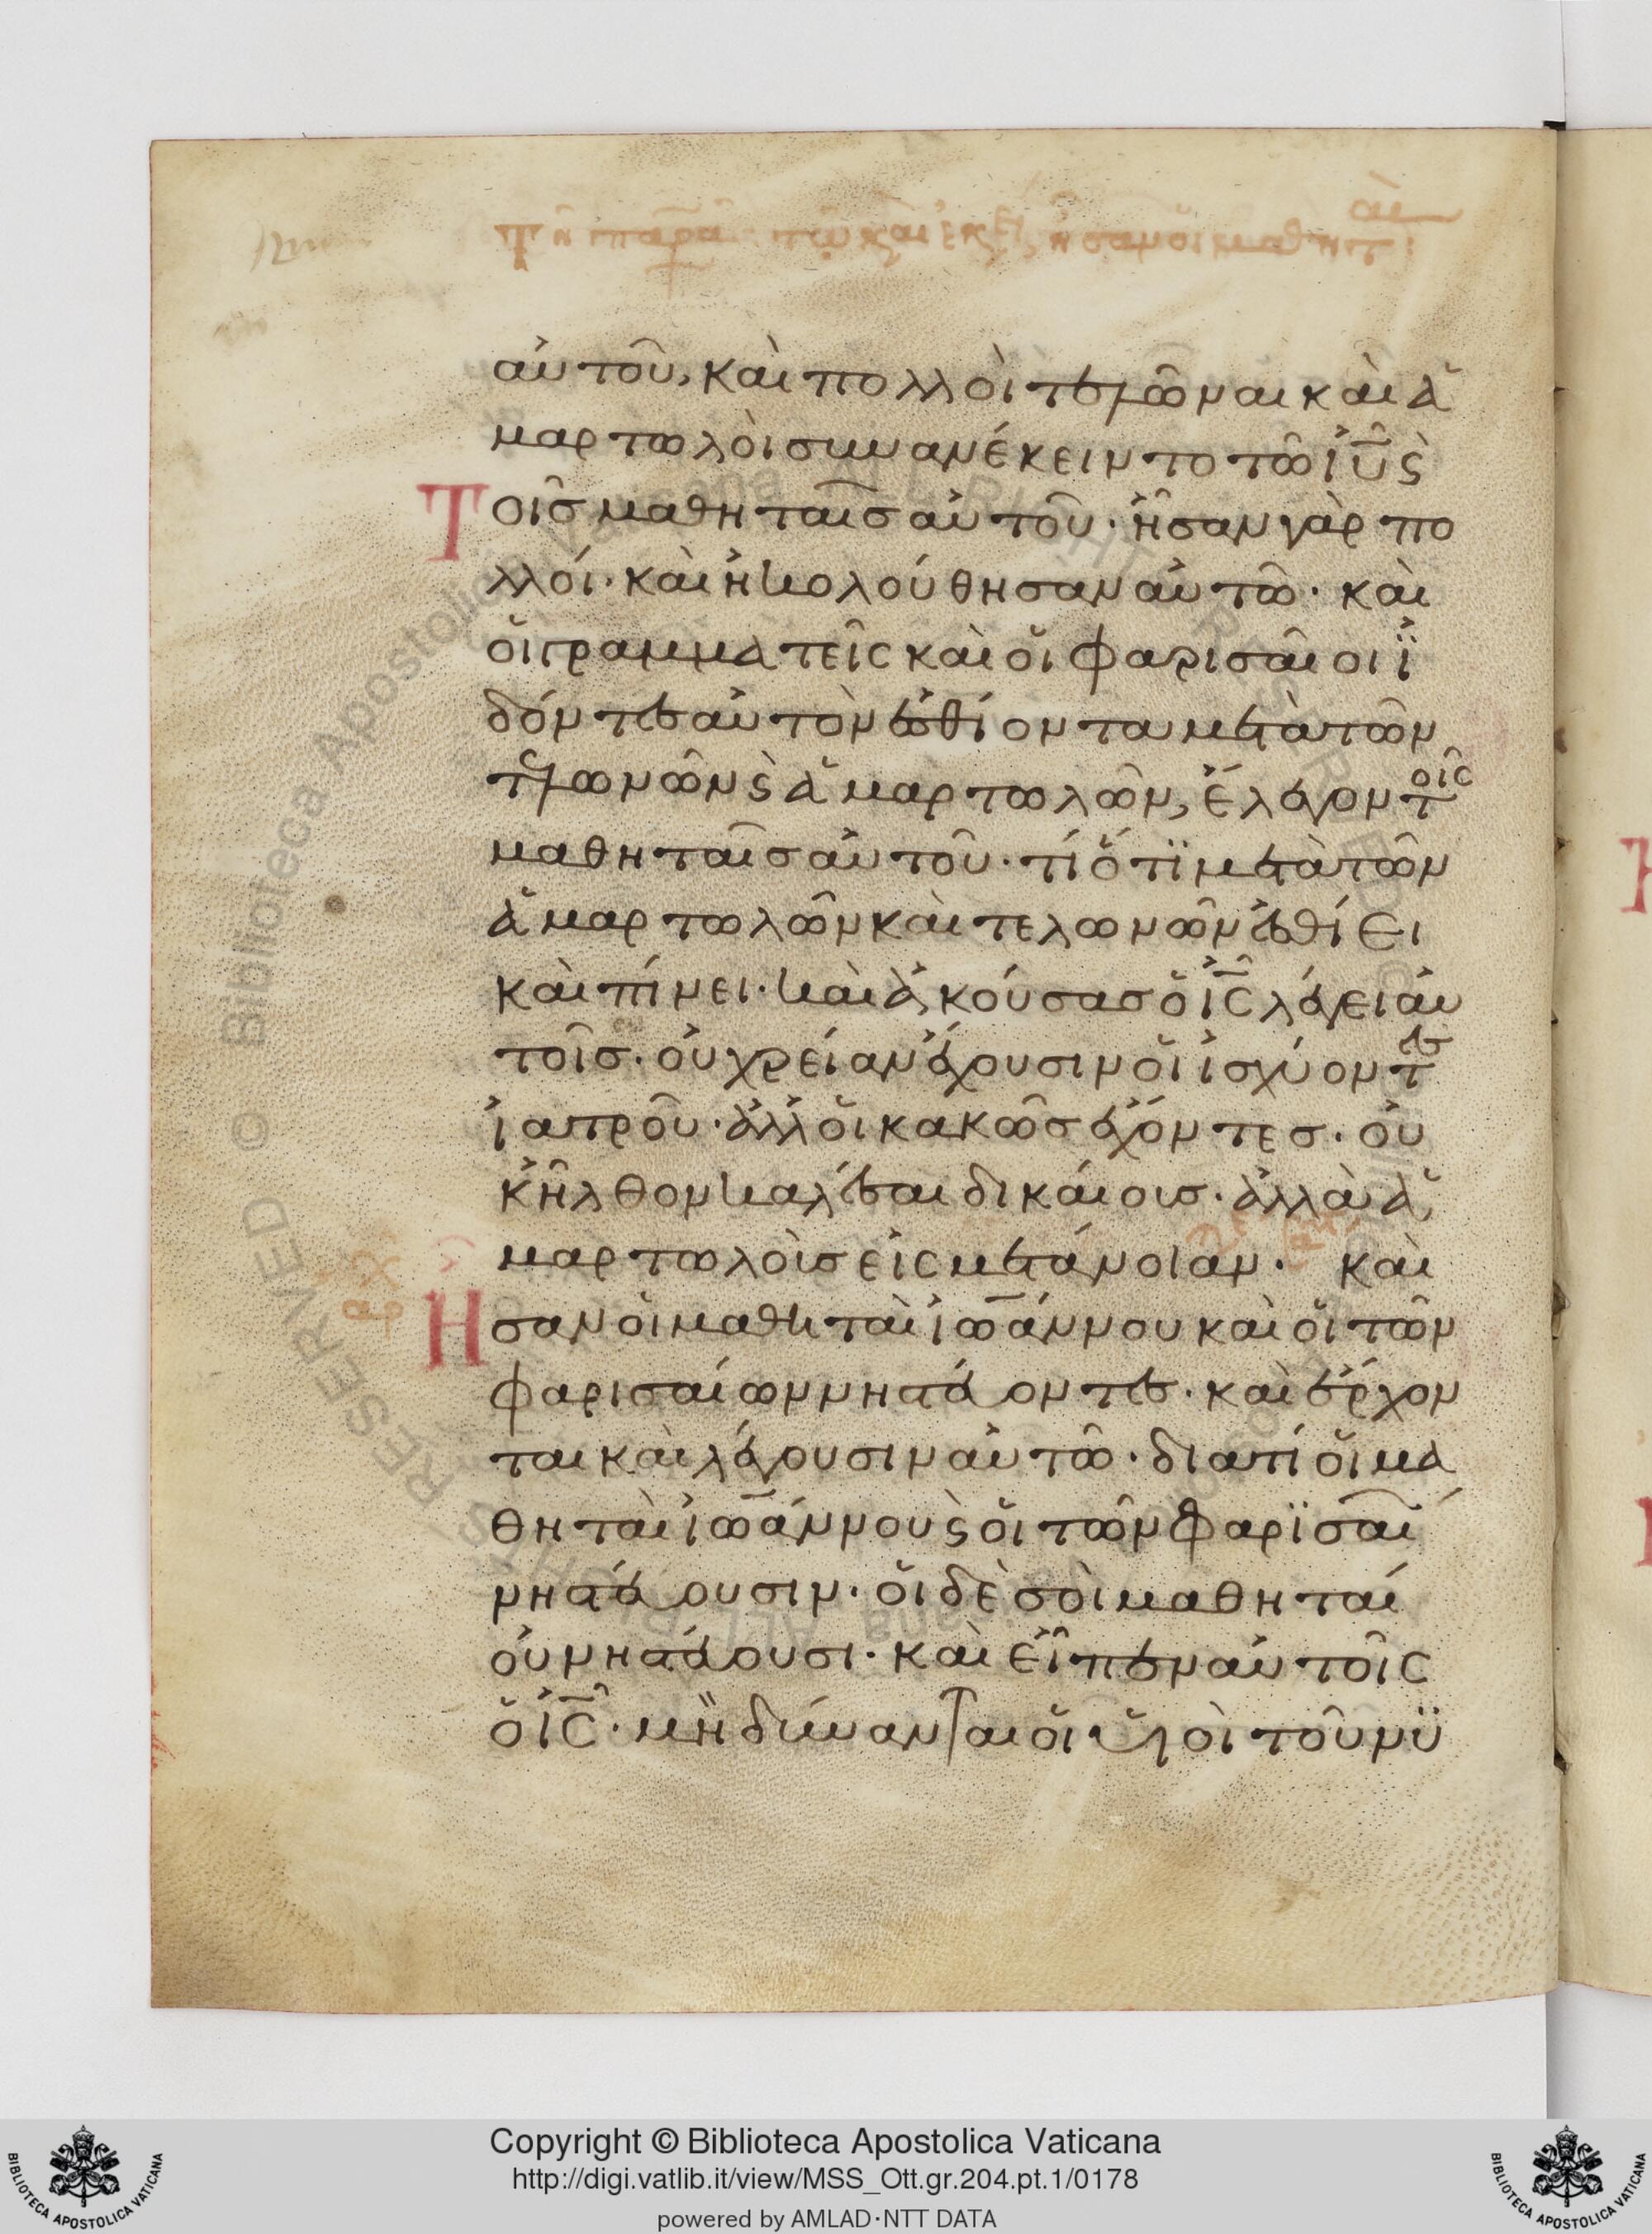 αὐτοῦ, καὶ πολλοὶ τελῶναι καὶ ἁ
μαρτωλοὶ συνανέκειντο τῶ ἰῦ ϗ
Τοῖς μαθηταῖς αὐτοῦ· ἦσαν γὰρ πο
λλοί· καὶ ἠκολούθησαν αὐτῶ· καὶ
οἱ γραμματεῖς καὶ οἱ φαρισαῖοι ἰ
δόντες αὐτὸν ἐσθίοντα μετὰ τῶν
τελωνῶν ϗ ἁμαρτωλῶν, ἔλεγον τοῖς
μαθηταῖς αὐτοῦ· τί ὅτι μετὰ τῶν
ἁμαρτωλῶν καὶ τελωνῶν ἐσθίει
καὶ πίνει· καὶ ἀκούσας ὁ ἰς λέγει αὐ
τοῖς· οὐ χρείαν ἔχουσιν οἱ ἰσχύοντες
ἰατροῦ· ἀλλ οἱ κακῶς ἔχοντες· οὐ
κ ἦλθον καλέσαι δικαίοις· ἀλλὰ ἁ
μαρτωλοὶς εἰς μετάνοιαν· καὶ
Ησαν οἱ μαθηταὶ ἰωάννου καὶ οἱ τῶν
φαρισαίων νηστεύοντες· καὶ ἔρχον
ται καὶ λέγουσιν αὐτῶ· διατί οἱ μα
θηταὶ ἰωάννου ϗ οἱ τῶν φαρισαί
νηστεύουσιν· οἱ δὲ σοὶ μαθηταί
οὐ νηστεύουσι· καὶ εἶπεν αὐτοῖς
ὁ ἰς· μὴ δύνανται οἱ υἱοὶ τοῦ νυ
Copyright © Biblioteca Apostolica Vaticana
http://digi.vatlib.it/view/MSS_Ott.gr.204.pt.1/0178
powered by AMLAD·NTT DATA
BIBLIOTECA APOSTOLICA VATICANA
BIBLIOTECA APOSTOLICA VATICANA